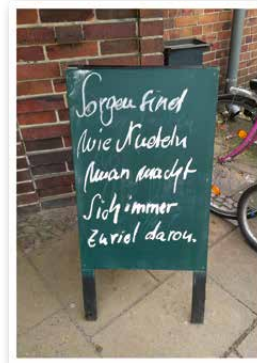 Sorgen sind
wie Nudeln
man macht
Sich immer
zuviel davon.